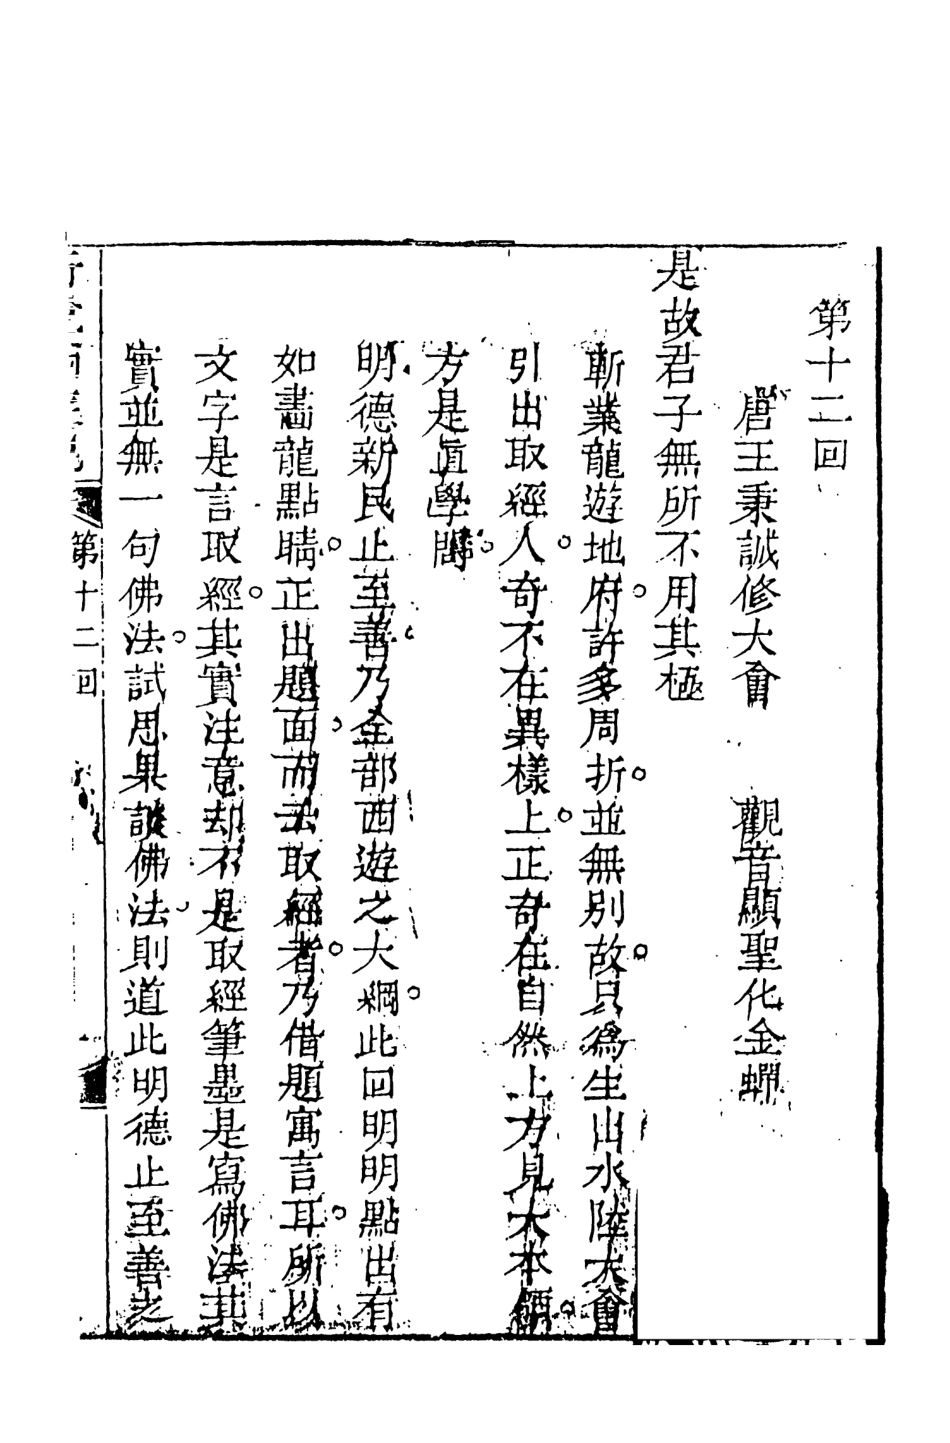 第十二回
唐王秉誠修大會　觀音顯聖化金蟬
是故君子無所不用其極
斬業龍遊地府許多周折並無別故只爲生出水陸大會
引出取經人奇不在異樣上正奇在自然上方見大本領
方是眞學問
明德新民止至善乃全部西遊之大綱此回明明點出有
如畵龍點睛正出題面而云取經者乃借題寓言耳所以
文字是言取經其實注意却不是取經筆墨是寫佛法其
實並無一句佛法試思果談佛法則道此明德止至善之
第十二回